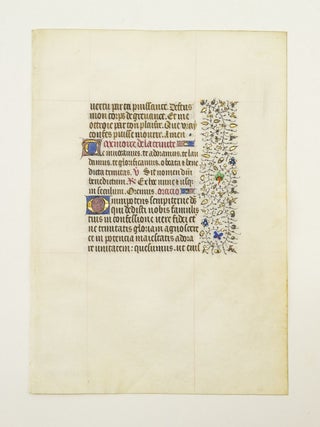 vertu par ta puissance. Defens
mon corps de grevance. Et me
ottroie par ton plaisir. Que vray
confes puisse mourir. Amen
Memoire de la trinite
Te invocamus. te adoramus. te lau
damus. te glorificamus. o beata et bene
dicta trinitas. V. Sit nomen dni
benedictum. R. Ex hoc nunc et usqz
in seculum. Oremus. oratio
Omnipotens sempiterne ds
qui dedisti nobis famulis
tuis in confessione vere fidei et
ne trinitatis gloriam agnoscere
et in potencia maiestatis adora
re unitatem: quesumus. ut eius